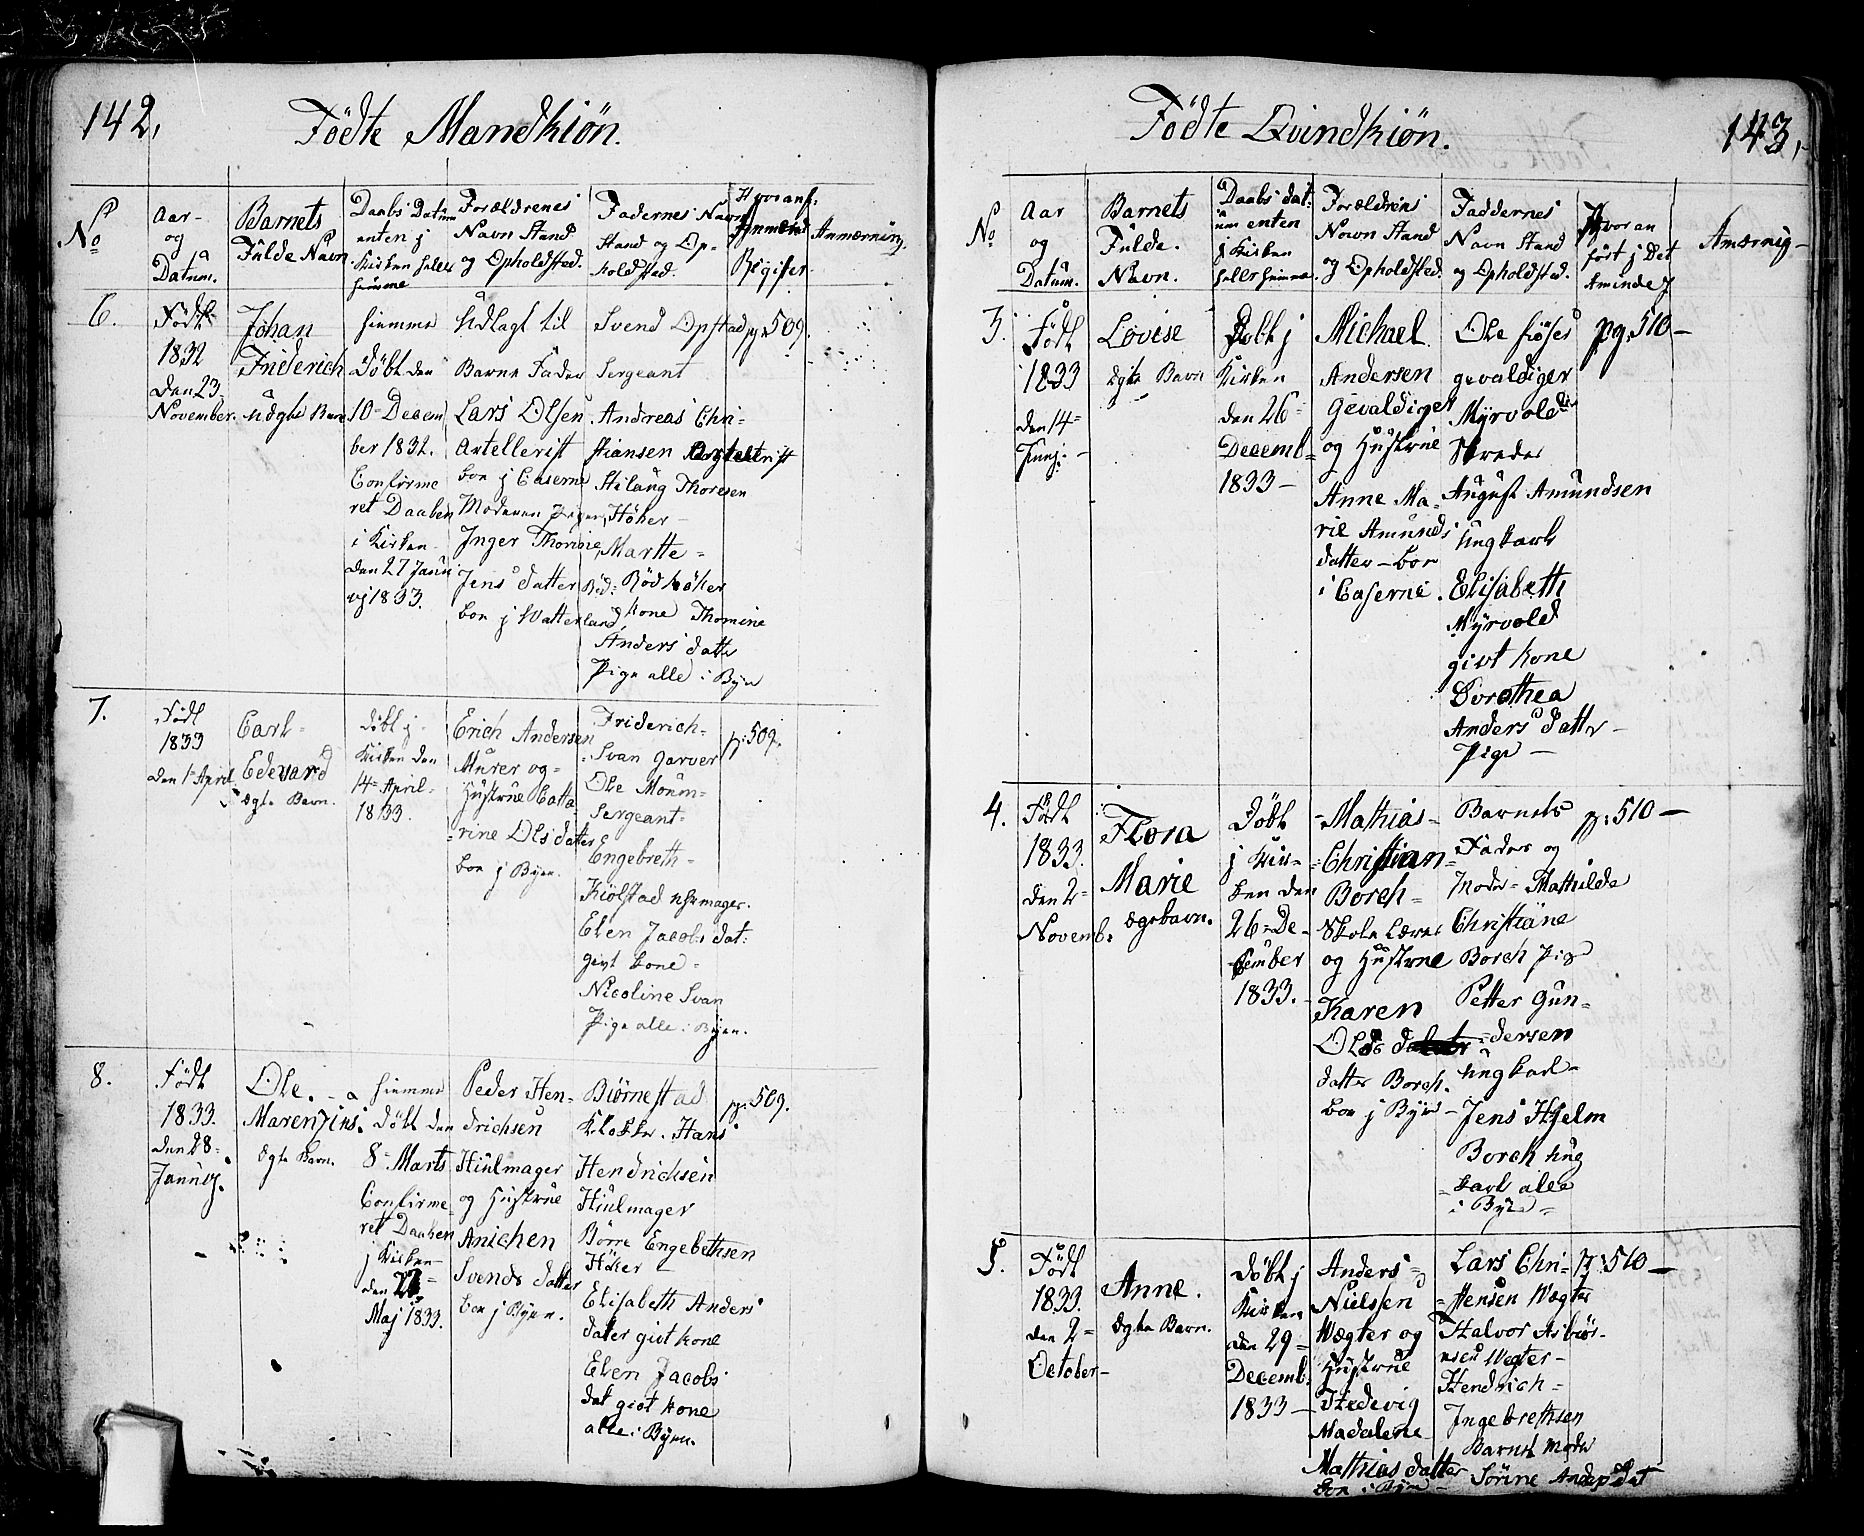 142,
Födte Mandkiön.
No
Aar
og
Datum.
Barnets
Fulde Navn
Daabs Datum
enten j
Kirken heller
hiemme
Forældrenes
Navn Stand
og Opholdsted.
Fadernes Navn
Stand og Op-
holdsted.
Hvor anf.
Anmærning
6.
Födt
1832
den 23
November.
Johan
Friderich
uægte Barn
hiemme
Döbt den
10= Decem
ber 1832.
Confirme
ret Daaben
i Kirken
den 27 Janu
vj 1833.
Udlagt til
Barne Fader
Lars Olsen
Artellerist
boe j Caserne
Moderen Pigen
Inger Thomine
Jens datter
boe j Watterland
Svend Opstad
Sergeant
Andreas Chri=
stiansen
Aslaug Thoresen
Höker
Marthe=
Rödhöker
kone Thomine
Anders datter
Pige alle i Byen
pg. 509.
7.
Födt
1833
den 1= April
Carl-
Edevard
Ægte Barn.
döbt j
Kirken den
14= April-
1833.
Erich Andersen
Murer og=
Hustrue Catta
rine Ols datter
boe j Byen.
Friderich-
Svan garver
Ole Moum-
Sergeant-
Engebreth-
Kiölstad
Elen Jacobs dat:
givt kone-
Nicoline Svan
Pige alle i Byen.
p: 509.
8.
Födt
1833.
den 28-
Januj.
Ole.
Marenjins.
Ægte Barn.
hiemme
döbt den
8= Marts
Confirme
ret Daaben
j Kirken
den
Maj 1833.
Peder Hen-
drichsen
Hiulmager
og Hustrue
Anichen
Svends datter
boe j Byen.
Biörnestad
Klokker. Hans
Hendricksen
Hiulmager
Börre Engebethsen
Höker
Elisabeth Anders
dater givt kone
Elen Jacobs
dat givt kone
alle i Byen.
pg: 509.
143,
Födte Qvindkiön.
No
Aar
og
Datum.
Barnets
Fulde.
Navn.
Daabs dat-
um enten
j Kirken
heller hiemme
Forældrens
Navn Stand
og Opholdsted.
Faddernes
Navn Stand
og Opholdsted.
Hvor an
fört j Det
Amindel
Amærnig-
3.
Födt
1833
den 14=
Junj.
Lovise
Ægte Barn
Döbt j
Kirken
den 26=
Decemb=
1833-
Michael
Andersen
Gevaldiger
og Hustrue
Anne Ma=
rie Amunds
datter- boe
i Caserne.
Ole
gevaldiger
Myrvold
Skreder
August Amundsen
ungkarl
Elisabeth
Myrvold
givt kone
Dorothea
Anders datter-
Pige-
pg. 510-
4.
Födt
1833.
den 2=
Novemb.
Flora
Marie
Ægtebarn.
Döbt
j Kir=
ken den
26= De-
cember
1833.
-Mathias-
Christian=
Borch-
Skole Lærer
og Hustrue
Karen
Ols
datter Borch.
boe j Byen-
Barnets
Fader og
Moder= Mathilde
Christiane
Borch Pige
Petter Gun-
dersen
ungkarl-
Jens Hjelm
Borch ung
karl alle
i Byen=
p: 510-
5.
Födt
1833.
den 2=
October-
Anne.
Ægte Barn.
döbt j
Kirken
den 29=
Decemb:
1833-
Anders=
Nielsen
Wægter og
Hustrue
Hedevig
Madalene
Mathias datter
boe i Byen-
Lars Chri-
stensen Wægter
Halvor Asbiör-
nsen Wegter-
Hendrich=
Ingebrethsen
Barnets Moder
Sörine
p: 510-